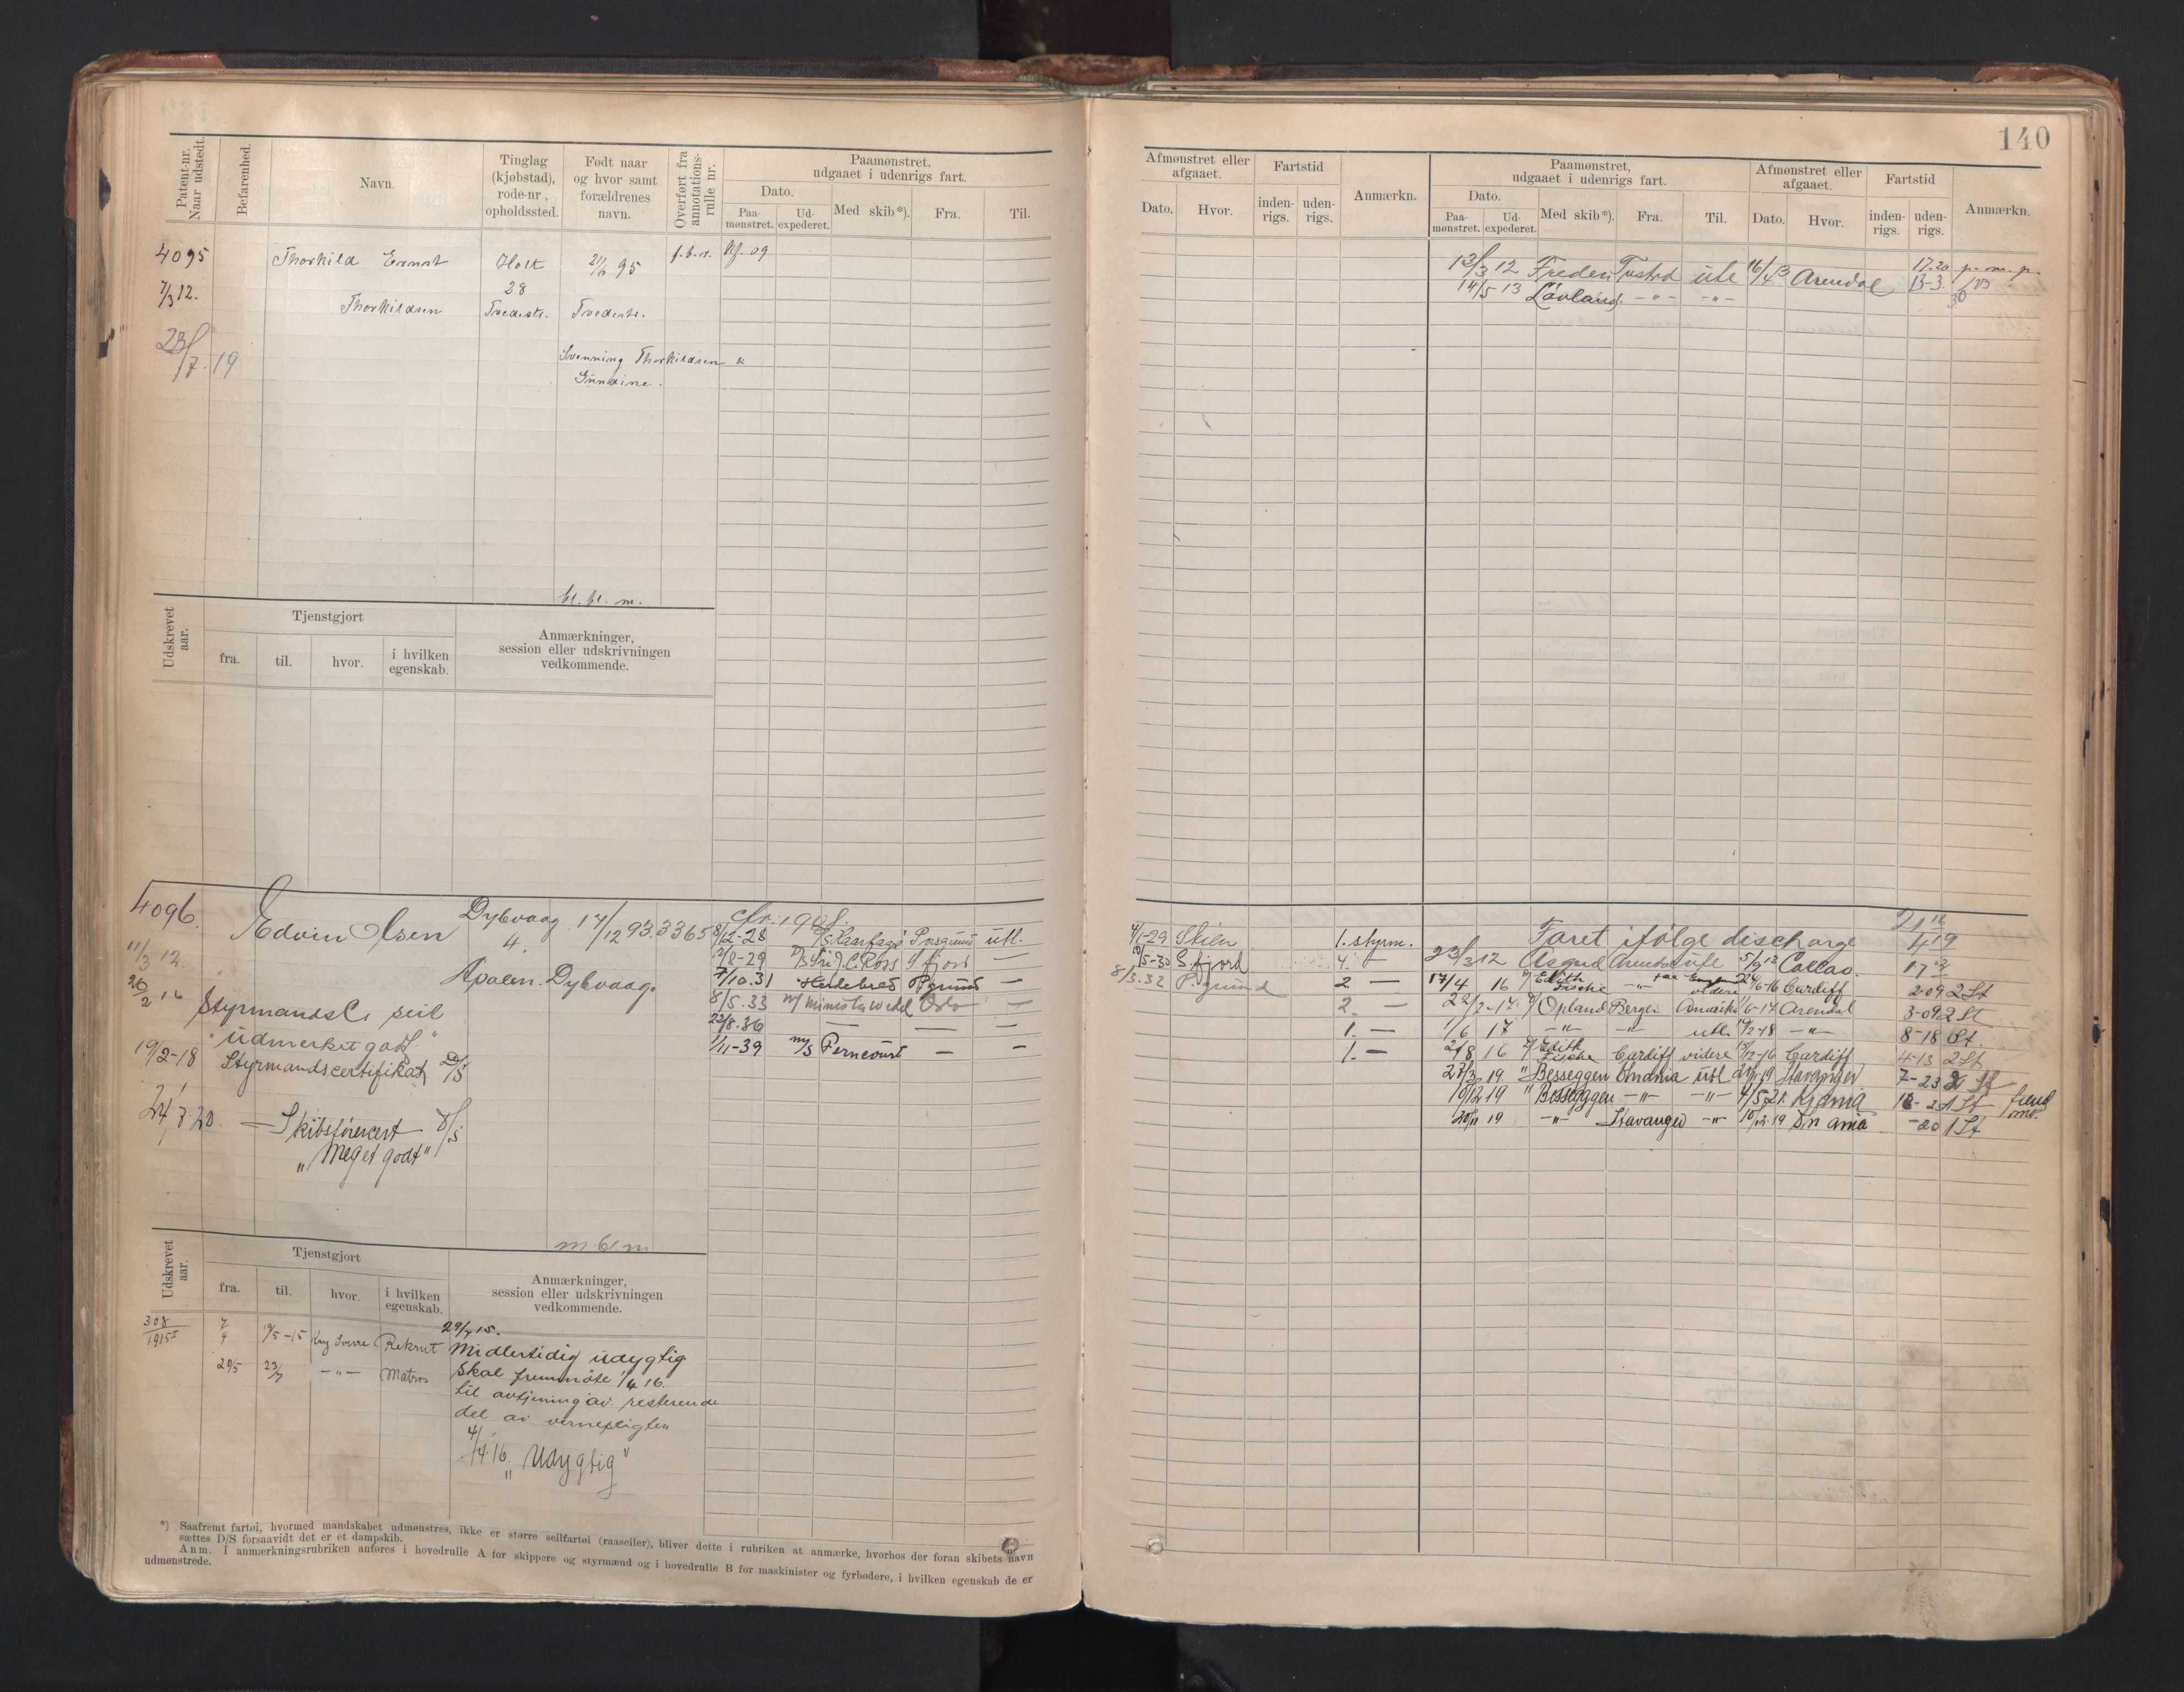 140
Patent-nr. Naar udstedt.
Befarenhed.
Navn.
Tinglag (kjøbstad), rode-nr, opholdssted.
Født naar og hvor samt forældrenes navn.
Overført fra annotations-rulle nr.
Paamønstret, udgaaet i udenrigs fart.
Dato.
Paa-mønstret.
Ud-expederet.
Med skib*).
Fra.
Til.
Afmønstret eller afgaaet.
Dato.
Hvor.
Fartstid
inden-rigs.
uden-rigs.
Anmærkn.
Paamønstret, udgaaet i udenrigs fart.
Dato.
Paa-mønstret.
Ud-expederet.
Med skib*).
Fra.
Til.
Afmønstret eller afgaaet.
Dato.
Hvor.
Fartstid
inden-rigs.
uden-rigs.
Anmærkn.
4095 Thorkild Ernst Holt 21/6 95 f.b.n. Kf. 09
7/3 12. 28
Thorkildsen Tvedestr. Tvedestr.
23/7.19
Svenning Thorkildsen &
Gundine.
13/3 12 ute 16/4 13 Arendal 17.20 p.m.p.
14/5 13 Løvland -"- -"- 13-3.
bl. bl. m.
Udskrevet aar.
Tjenstgjort
fra.
til.
hvor.
i hvilken egenskab.
Anmærkninger, session eller udskrivningen vedkommende.
4096. Edvin Olsen Dybvaag 17/12 93. 3365
4.
11/3 12. Apalen. Dybvaag.
26/2 16 StyrmandsC. seil
"udmerket godt"
19/2-18 Styrmandscertifikat D/S
24/7 20. — Skibsførercert D/S
"Meget godt"
cfr. 1908.
8/12-28 D/S Haarfagre Porsgrund utl.
/8-29 D/S Sir J. C. Ross S.fjord —
7/10.31 Herlebred P.grund —
8/5.33 M/ Minister Wedel Oslo —
22/8.36 — — —
1/11-39 M/S Ferncourt — —
4/1-29 Skien 1. styrm.
/5-30 S.fjord 4. —
8/3.32 P.grund 2 —
2. —
1. —
1. —
Faret ifølge discharge 4 19
23/3 12 Asgard Arendal ute 5/9 13 Callao.
17/4 16 D/ Edith -"- videre 24/6-16 Cardiff 2-09 2 St
22/2-17 D/ Opland Bergen Amerika 1/6-17 Arendal 3-09 2 St
1/6 17 -"- -"- utl. /2-18 -"- 8-18 St.
2/8 16 D/ Edith Cardiff videre /12-16 Cardiff 4-13 2 St
27/3 19 "Besseggen Stavanger 7-23 2 St
10/12 19 "Besseggen -"- -"- 4/5-21. Kr.ania 1 St
20/11 19 -"- Stavanger -"- 10/12.19 -20 1 St
m. bl. m
Udskrevet aar.
Tjenstgjort
fra.
til.
hvor.
i hvilken egenskab.
Anmærkninger, session eller udskrivningen vedkommende.
308/1915 7/4 /5-15 Kng Sverre Rekrut
29/5 23/7 -"- Matros
29/7 15.
Midlertidig udygtig
skal fremmøte 1/4 16.
til avtjening av resterende
del av vernepligten
4/4.16. "Udygtig"
*) Saafremt fartøi, hvormed mandskabet udmønstres, ikke er større seilfartøi (raaseiler), bliver dette i rubriken at anmærke, hvorhos der foran skibets navn
sættes D/S forsaavidt det er et dampskib.
Anm. I anmærkningsrubriken anføres i hovedrulle A for skippere og styrmænd og i hovedrulle B for maskinister og fyrbødere, i hvilken egenskab de er
udmønstrede.